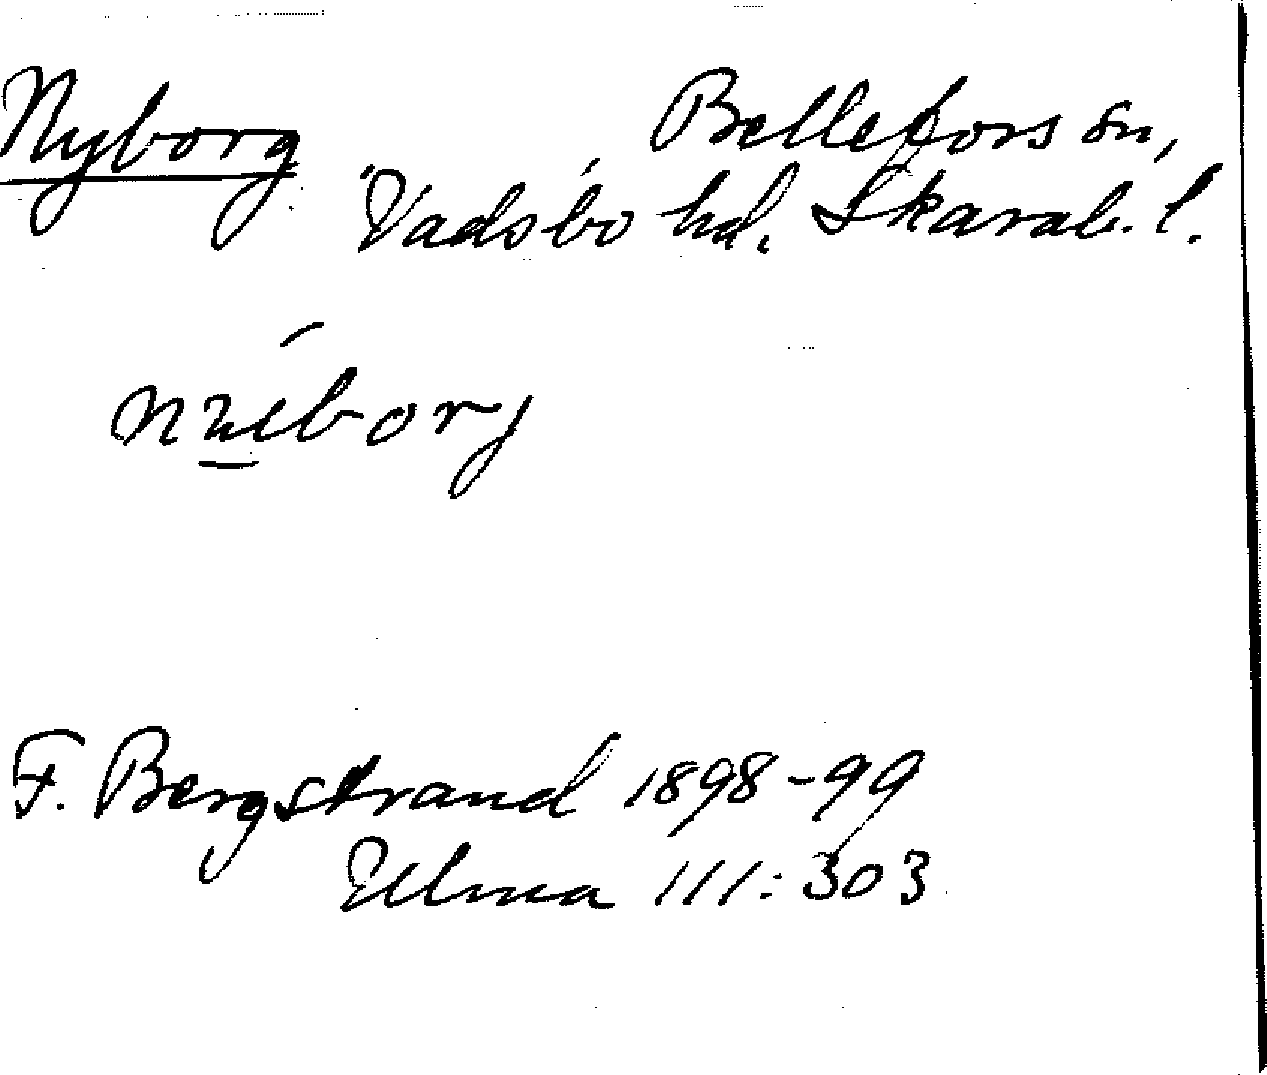 Nyborg Bellefors sn,
Vadsbo hd. Skarab. l.
nuiborj
F. Bergstrand 1898-99
Elma 111:303